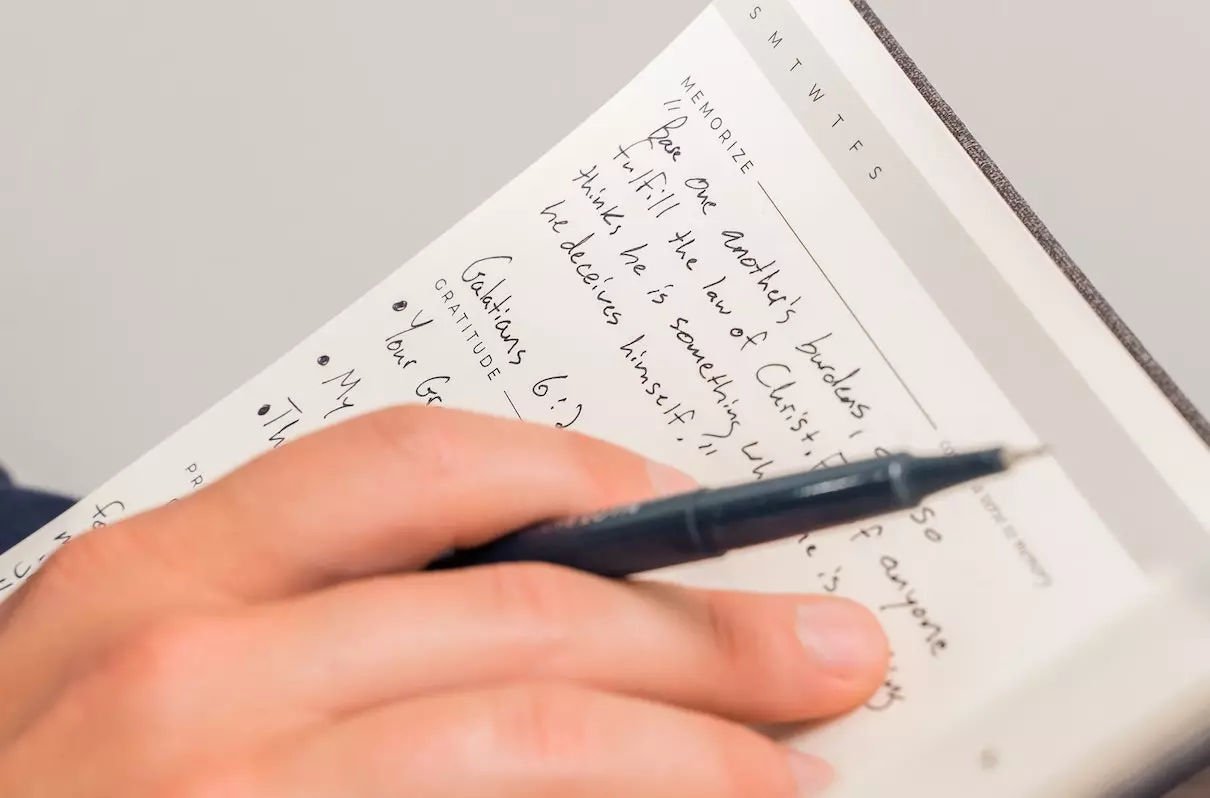 S M T W T F S
MEMORIZE
"Bare one another's burdens, so
fulfill the law of Christ. anyone
thinks he is something is
he deceives himself."
Galatians 6:2
GRATITUDE
• Your
• My